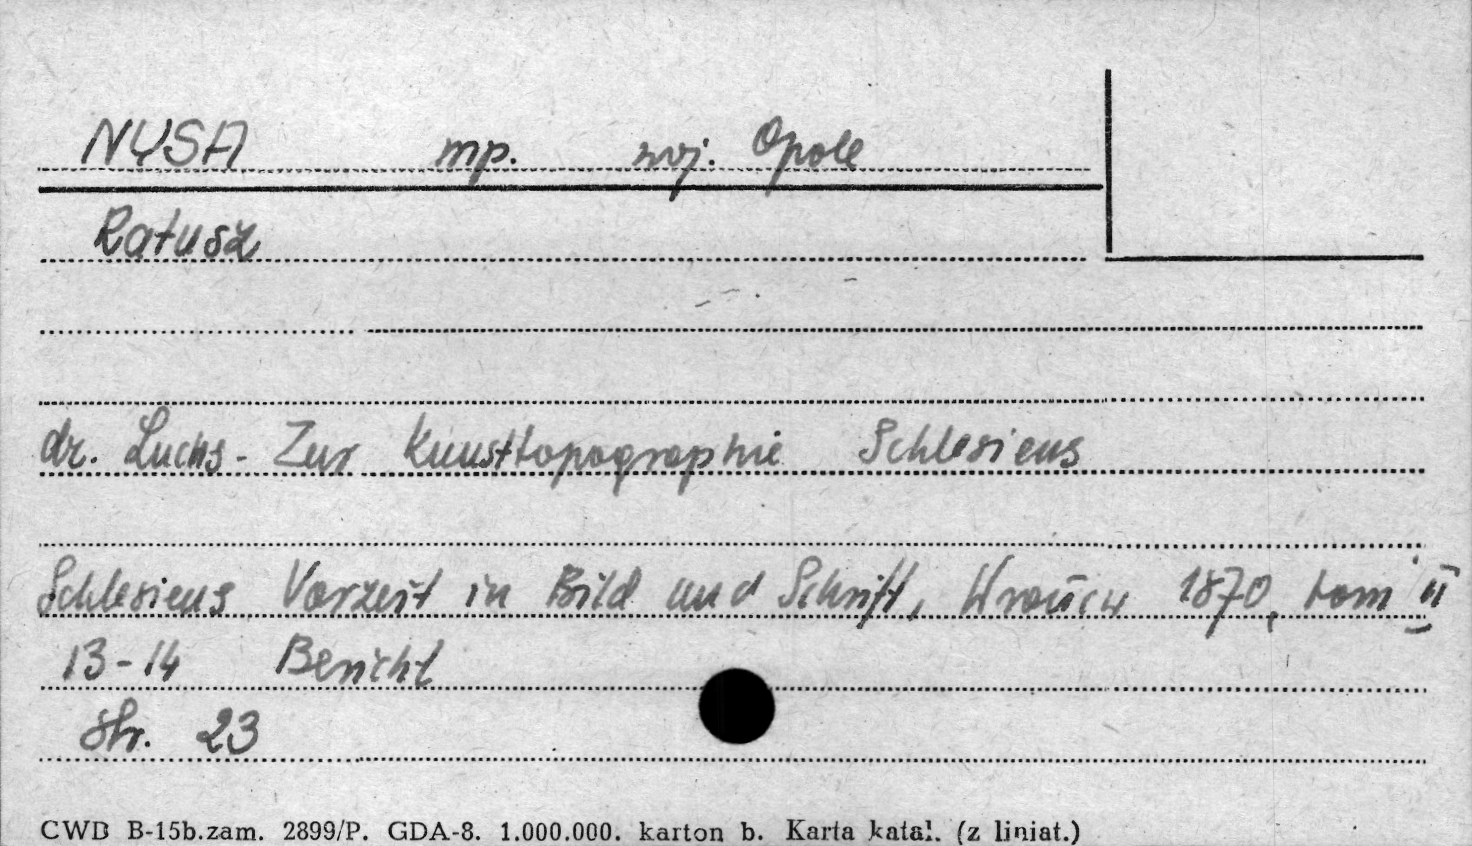 NYSA mp. woj. Opole
Ratusz
dr. Luchs - Zur Kunsttopographie Schlesiens
Schlesiens Vorzeit in Bild und Schrift, Wrocław 1870, tom II
13-14 Bericht
str. 23
CWD B-15b.zam. 2899/P. GDA-8. 1.000.000. karton b. Karta katal. (z liniat.)